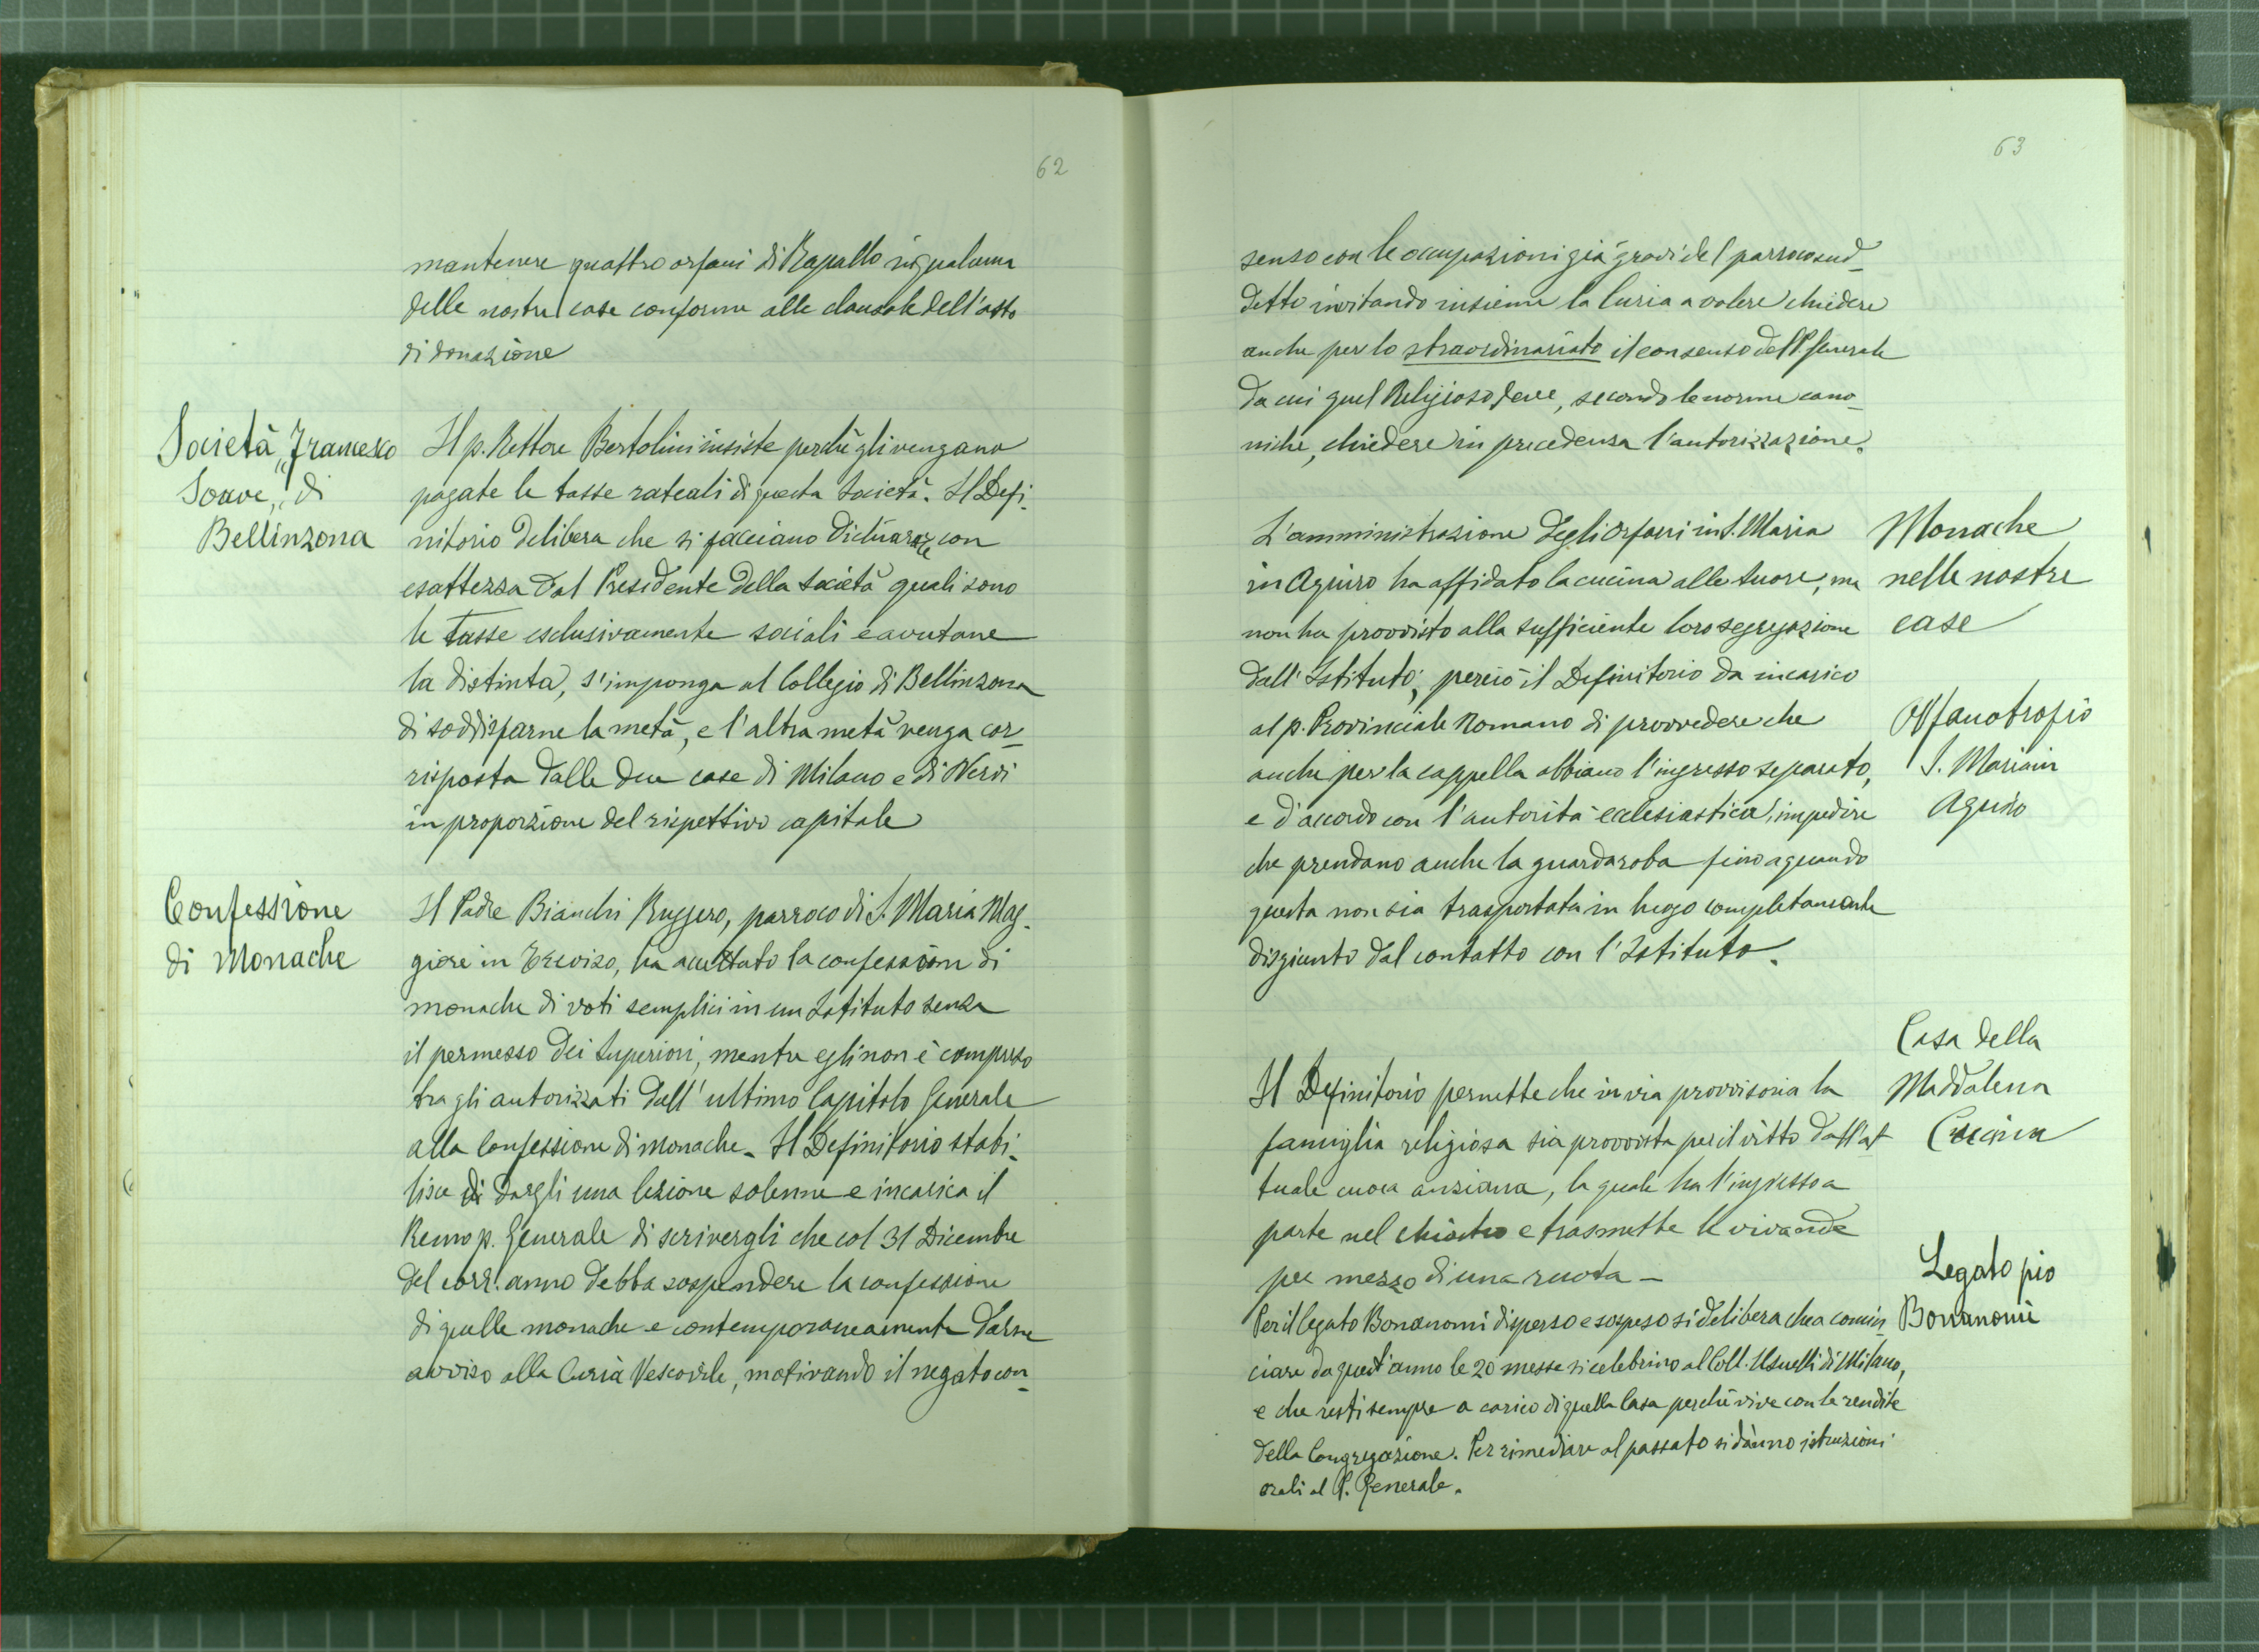 62
mantenere quattro orfani di Rapallo in qualcuna
delle nostre case conforme alle clausole dell'atto
di donazione
Società „Francesco
Soave„ di
Bellinzona
Il p. Rettore Bertolini insiste perchè gli vengano
pagate le tasse rateali di questa Società. Il Defi-
nitorio delibera che si facciano dichiarare con
esattezza dal Presidente della Società quali sono
le tasse esclusivamente sociali e avutane
la distinta, s'imponga al Collegio di Bellinzona
di soddisfarne la metà, e l'altra metà venga cor-
risposta dalle due case di Milano e di Nervi
in proporzione del rispettivo capitale
Confessione
di Monache
Il Padre Bianchi Ruggero, parroco di S. Maria Mag-
giore in Treviso, ha accettato la confessione di
monache di voti semplici in un Istituto senza
il permesso dei Superiori, mentre egli non è compreso
tra gli autorizzati dall'ultimo Capitolo Generale
alla Confessione di monache. Il Definitorio stabi-
lisce di dargli una lezione solenne e incarica il
Remo p. Generale di scrivergli che col 31 Dicembre
del corr. anno debba sospendere la confessione
di quelle monache e contemporaneamente darne
avviso alla Curia Vescovile, motivando il negato con-
63
senso con le occupazioni già gravi del parroco sud-
detto invitando insieme la Curia a volere chiedere
anche per lo straordinariato il consenso del P. Generale
da cui quel Religioso deve, secondo le norme cano-
niche, chiedere in precedenza l'autorizzazione.
L'amministrazione degli Orfani in S. Maria
in Aquiro ha affidato la cucina alle Suore, ma
non ha provvisto alla sufficiente loro segregazione
dall'Istituto; perciò il Definitorio da incarico
al p. Provinciale Romano di provvedere che
anche per la cappella abbiano l'ingresso separato,
e d'accordo con l'autorità ecclesiastica, impedire
che prendano anche la guardaroba fino a quando
questa non sia trasportata in luogo completamente
disgiunto dal contatto con l'Istituto.
Monache
nelle nostre
case
Orfanotrofio
S. Maria in
Aquiro
Il Definitorio permette che in via provvisoria la
famiglia religiosa sia provvista per il vitto dall'at
tuale cuoca anziana, la quale ha l'ingresso a
parte nel chiostro e trasmette le vivande
per mezzo di una ruota -
Casa della
Maddalena
Cucina
Per il legato Bonanomi disperso e sospeso si delibera che a comin-
ciare da quest'anno le 20 messe si celebrino al Coll. Usuelli di Milano,
e che resti sempre a carico di quella Casa perchè vive con le rendite
della Congregazione. Per rimediare al passato si dànno istruzioni
orali al P. Generale.
Legato pio
Bonanomi